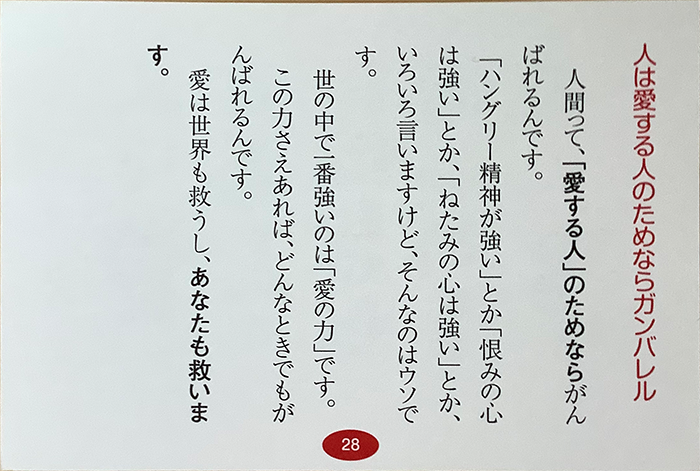 人は愛する人のためならガンバレル
人間って、「愛する人」のためならがん
ばれるんです。
「ハングリー精神が強い」とか「恨みの心
は強い」とか、「ねたみの心は強い」とか、
いろいろ言いますけど、そんなのはウソで
す。
世の中で一番強いのは「愛の力」です。
この力さえあれば、どんなときでもが
んばれるんです。
愛は世界も救うし、あなたも救いま
す。
28